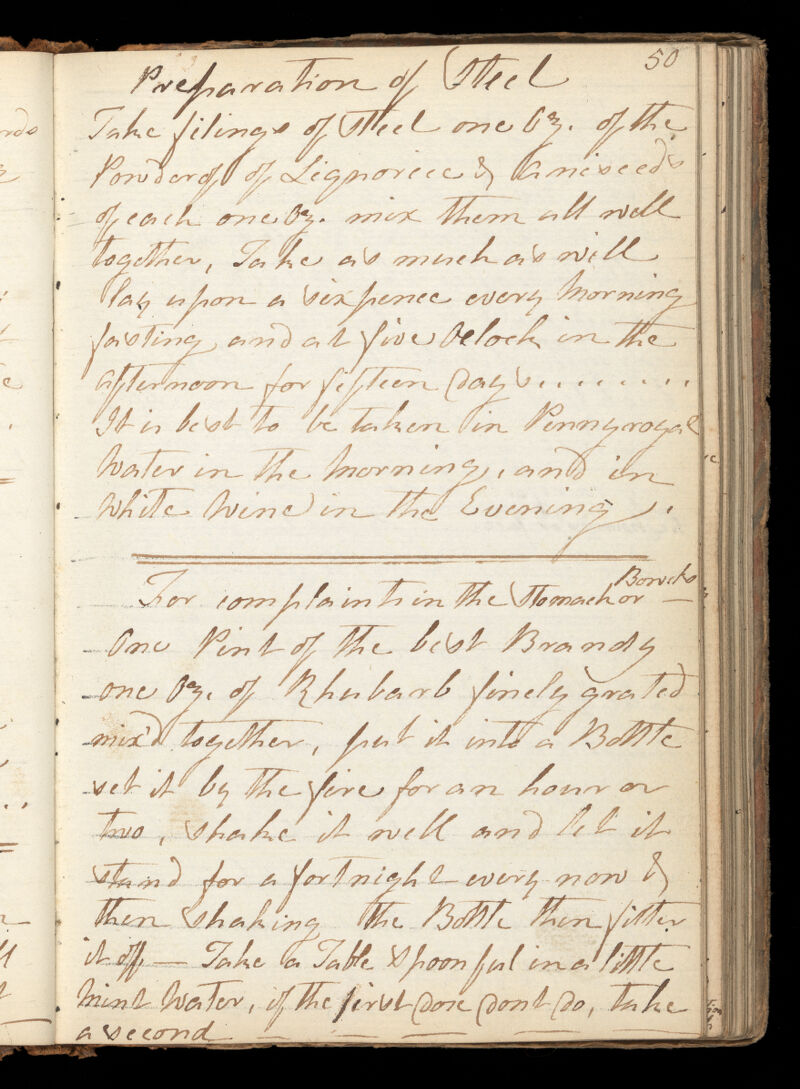 50
Preparation of Steel
Take filings of Steel one Oz. of the
Powder of of Liquoriece & Aniseeds
of each one Oz. mix them all well
together, Take as much as will
lay upon a sixpence every Morning
fasting and at five Oclock in the
afternoon for fifteen days.........
It is best to be taken in Pennyroyal
Water in the Morning, and in
White Wine in the Evening.
For complaints in the Stomach or Bowels
One Pint of the best Brandy
one Oz. of Rhubarb finely grated
mix'd together, put it into a Bottle
set it by the fire for an hour or
two, shake it well and let it
stand for a fortnight every now &
then shaking the Bottle then filter
it off — Take a Table spoonful in a little
Mint Water, if the first dose dont do, take
a second